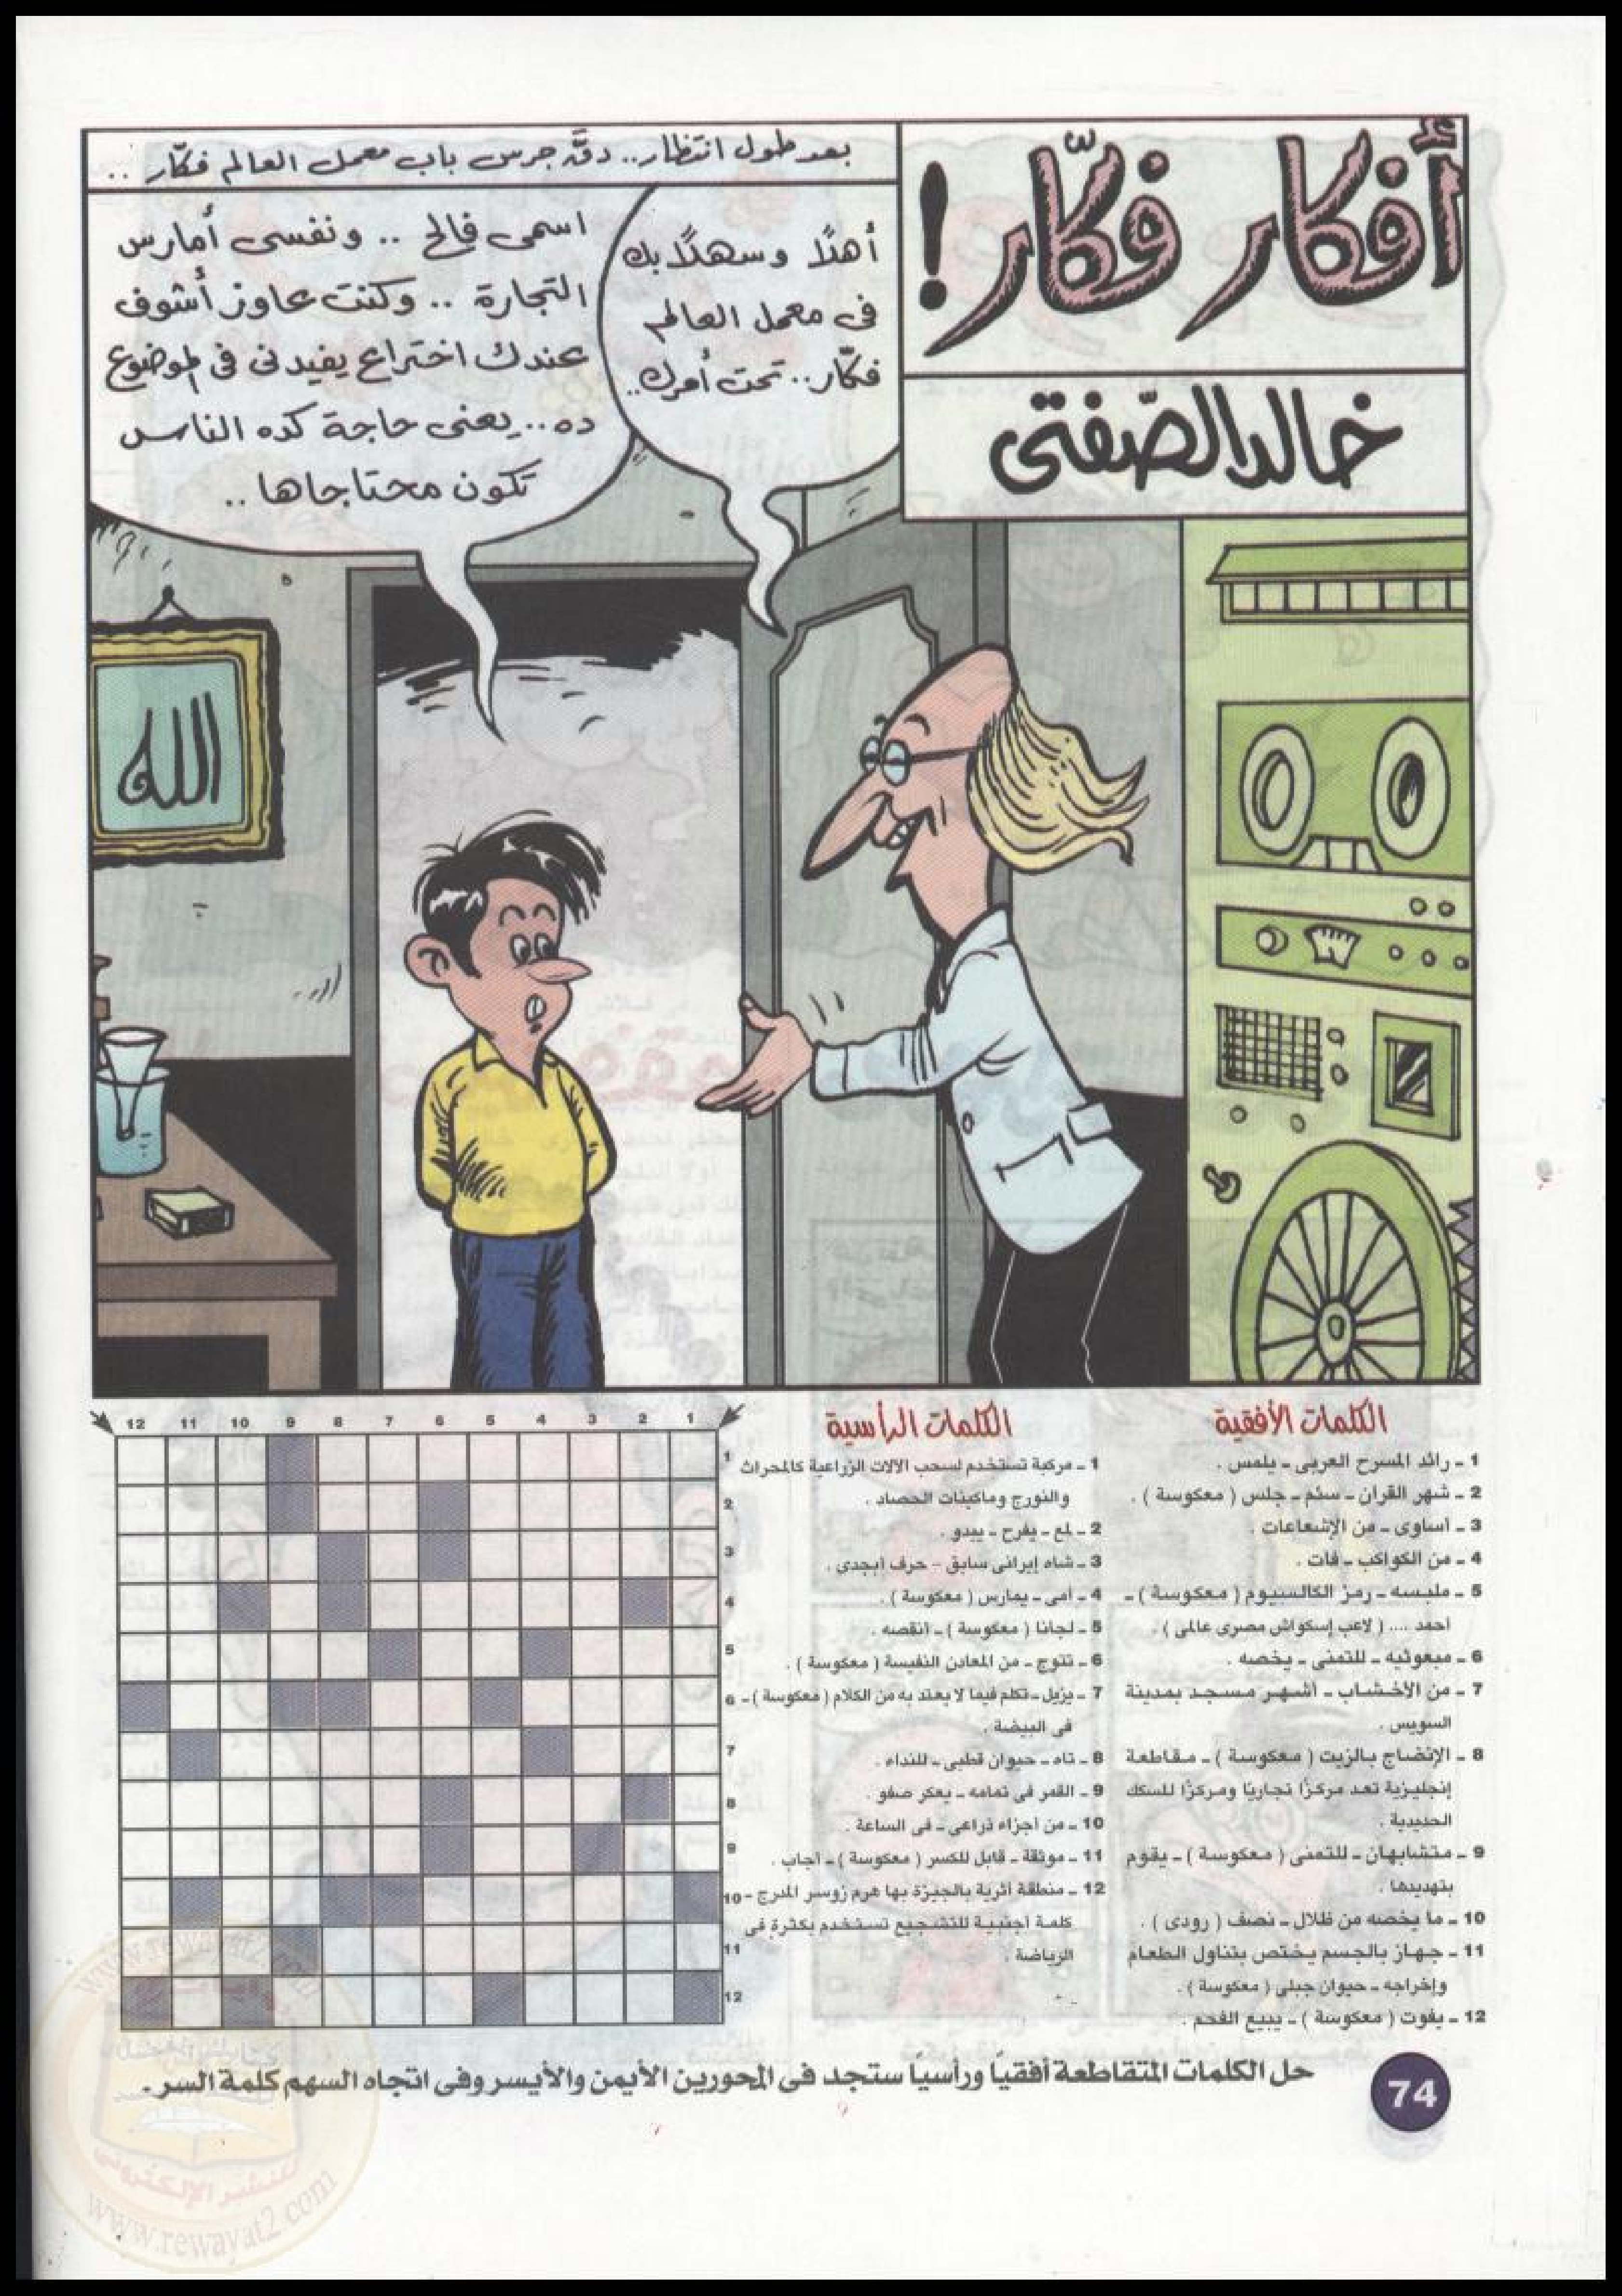 أفكار فكّار!
خالد الصّفتى
بعد طول انتظار.. دقّ جرس باب معمل العالم فكّار ..
أهلًا وسهلًا بك
فى معمل العالم
فكّار.. تحت أمرك..
اسمى فالح .. ونفسى أمارس
التجارة .. وكنت عاوز أشوف
عندك اختراع يفيدنى فى الموضوع
ده.. يعنى حاجة كده الناس
تكون محتاجاها ..
الله
الكلمات الأفقية
1 - رائد المسرح العربى - يلمس .
2 - شهر القرآن - سئم - جلس ( معكوسة ) .
3 - أساوى - من الإشعاعات .
4 - من الكواكب - فات .
5 - ملبسه - رمز الكالسيوم ( معكوسة ) -
أحمد .... ( لاعب إسكواش مصرى عالمى ) .
6 - مبعوثيه - للتمنى - يخصه .
7 - من الأخشاب - أشهر مسجد بمدينة
السويس .
8 - الإنضاج بالزيت ( معكوسة ) - مقاطعة
إنجليزية تعد مركزًا تجاريًا ومركزًا للسكك
الحديدية .
9 - متشابهان - للتمنى ( معكوسة ) - يقوم
بتهديدها .
10 - ما يخصه من ظلال - نصف ( رودى ) .
11 - جهاز بالجسم يختص بتناول الطعام
وإخراجه - حيوان جبلى ( معكوسة ) .
12 - يفوت ( معكوسة ) - يبيع الفحم .
الكلمات الرأسية
1 - مركبة تستخدم لسحب الآلات الزراعية كالمحراث
والنورج وماكينات الحصاد .
2 - لمع - يفرح - يبدو .
3 - شاه إيرانى سابق - حرف أبجدى .
4 - أمى - يمارس ( معكوسة ) .
5 - لجأنا ( معكوسة ) - أنقصه .
6 - تتوج - من المعادن النفيسة ( معكوسة ) .
7 - يزيل - تكلم فيما لا يعتد به من الكلام ( معكوسة ) -
فى البيضة .
8 - تاه - حيوان قطبى - للنداء .
9 - القمر فى تمامه - يعكر صفو .
10 - من أجزاء ذراعى - فى الساعة .
11 - موثقة - قابل للكسر ( معكوسة ) - أجاب .
12 - منطقة أثرية بالجيزة بها هرم زوسر المدرج -
كلمة أجنبية للتشجيع تستخدم بكثرة فى
الرياضة .
12 11 10 9 8 7 6 5 4 3 2 1
1
2
3
4
5
6
7
8
9
10
11
12
حل الكلمات المتقاطعة أفقيًا ورأسيًا ستجد فى المحورين الأيمن والأيسر وفى اتجاه السهم كلمة السر .
74
www.rewayat2.com
للنشر الإلكترونى
www.rewayat2.com